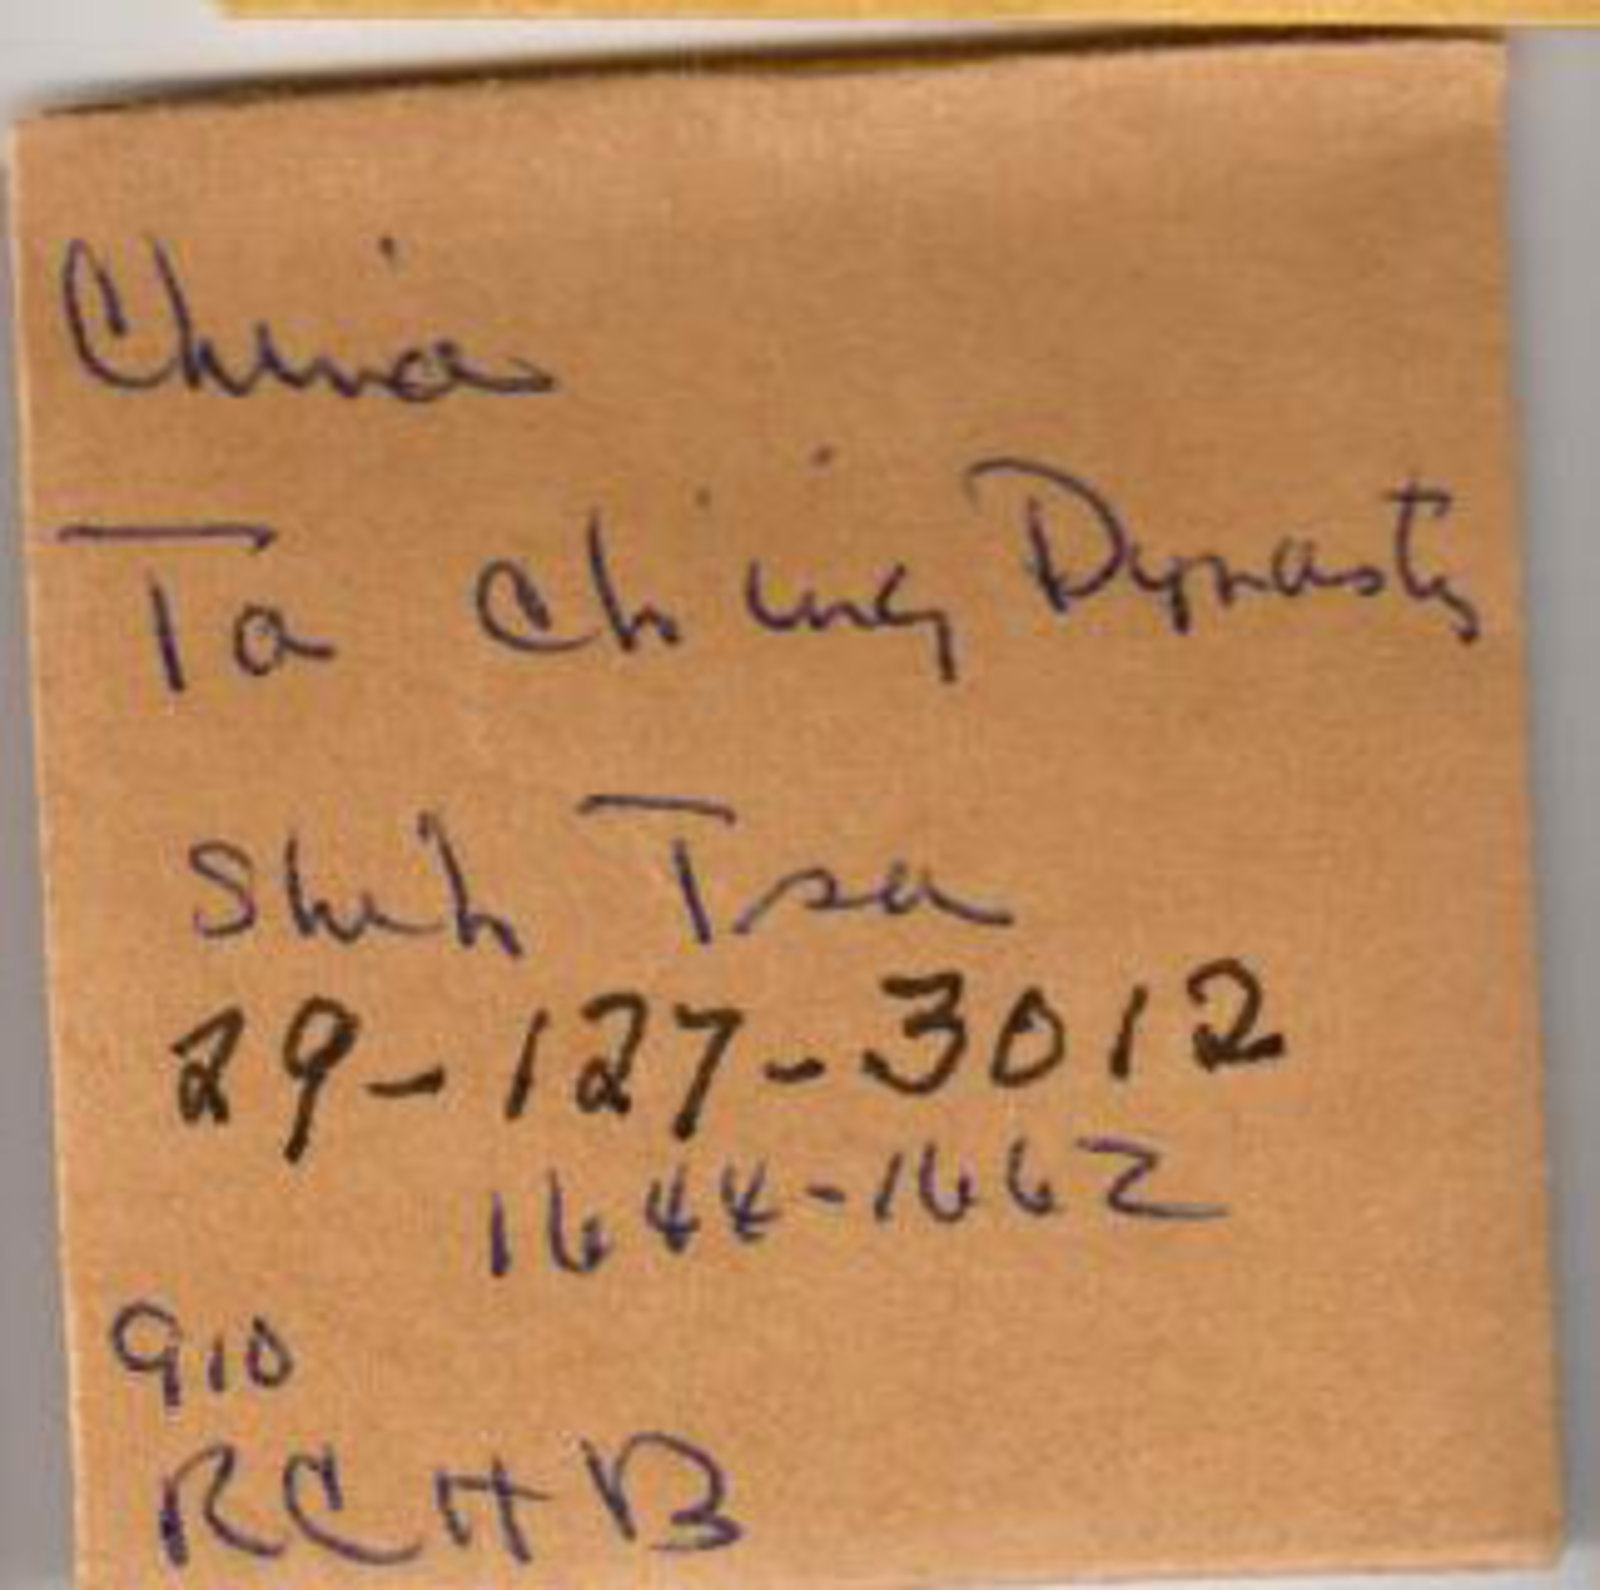 China
Ta Ch'ing Dynasty
Shih Tsu
29-127-3012
1644-1662
910
RCHB